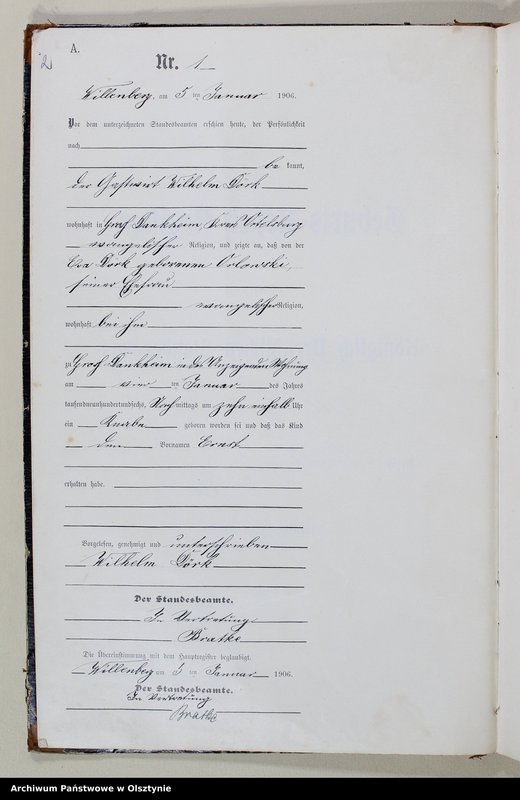 2
A.
Nr. 1
Willenberg, am 5 ten Januar 1906.
Vor dem unterzeichneten Standesbeamten erschien heute, der Persönlichkeit
nach
be kannt,
der Gastwirt Wilhelm Dörk
wohnhaft in Groß Dankheim, Kreis Ortelsburg
evangelischer Religion, und zeigte an, daß von der
Eva Dörk geborenen Orlowski,
seiner Ehefrau
evangelischer Religion,
wohnhaft bei ihm
zu Groß Dankheim in des Anzeigenden Wohnung
am vier ten Januar des Jahres
tausendneunhundertundsechs, Nach mittags um zehn einhalb Uhr
ein Knabe geboren worden sei und daß das Kind
den Vornamen Ernst
erhalten habe.
Vorgelesen, genehmigt und unterschrieben
Wilhelm Dörk
Der Standesbeamte.
In Vertretung
Bratke
Die Übereinstimmung mit dem Hauptregister beglaubigt.
Willenberg am 5 ten Januar 1906.
Der Standesbeamte.
In Vertretung
Bratke
Archiwum Państwowe w Olsztynie